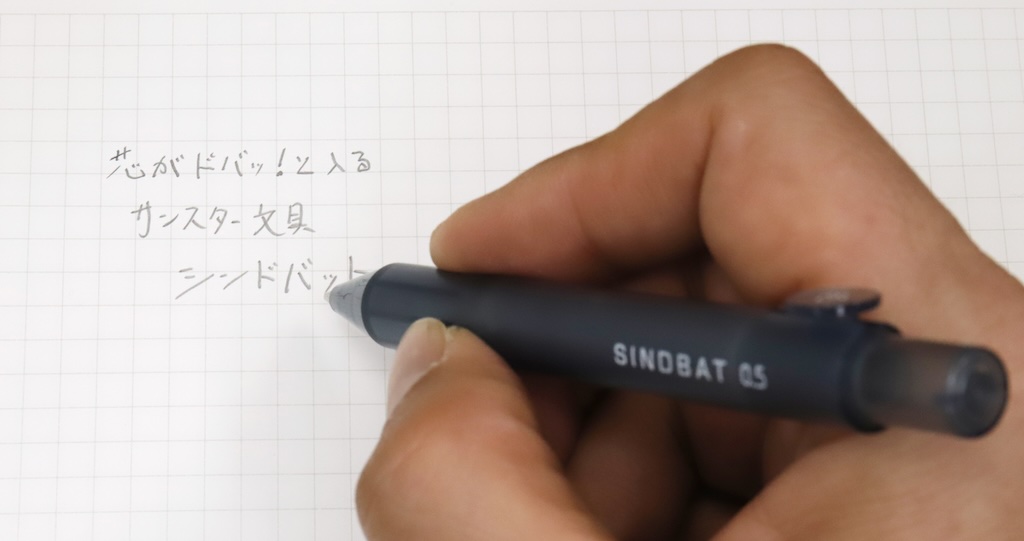 芯がドバッ!と入る
サンスター文具
シンドバット
SINDBAT 0.5